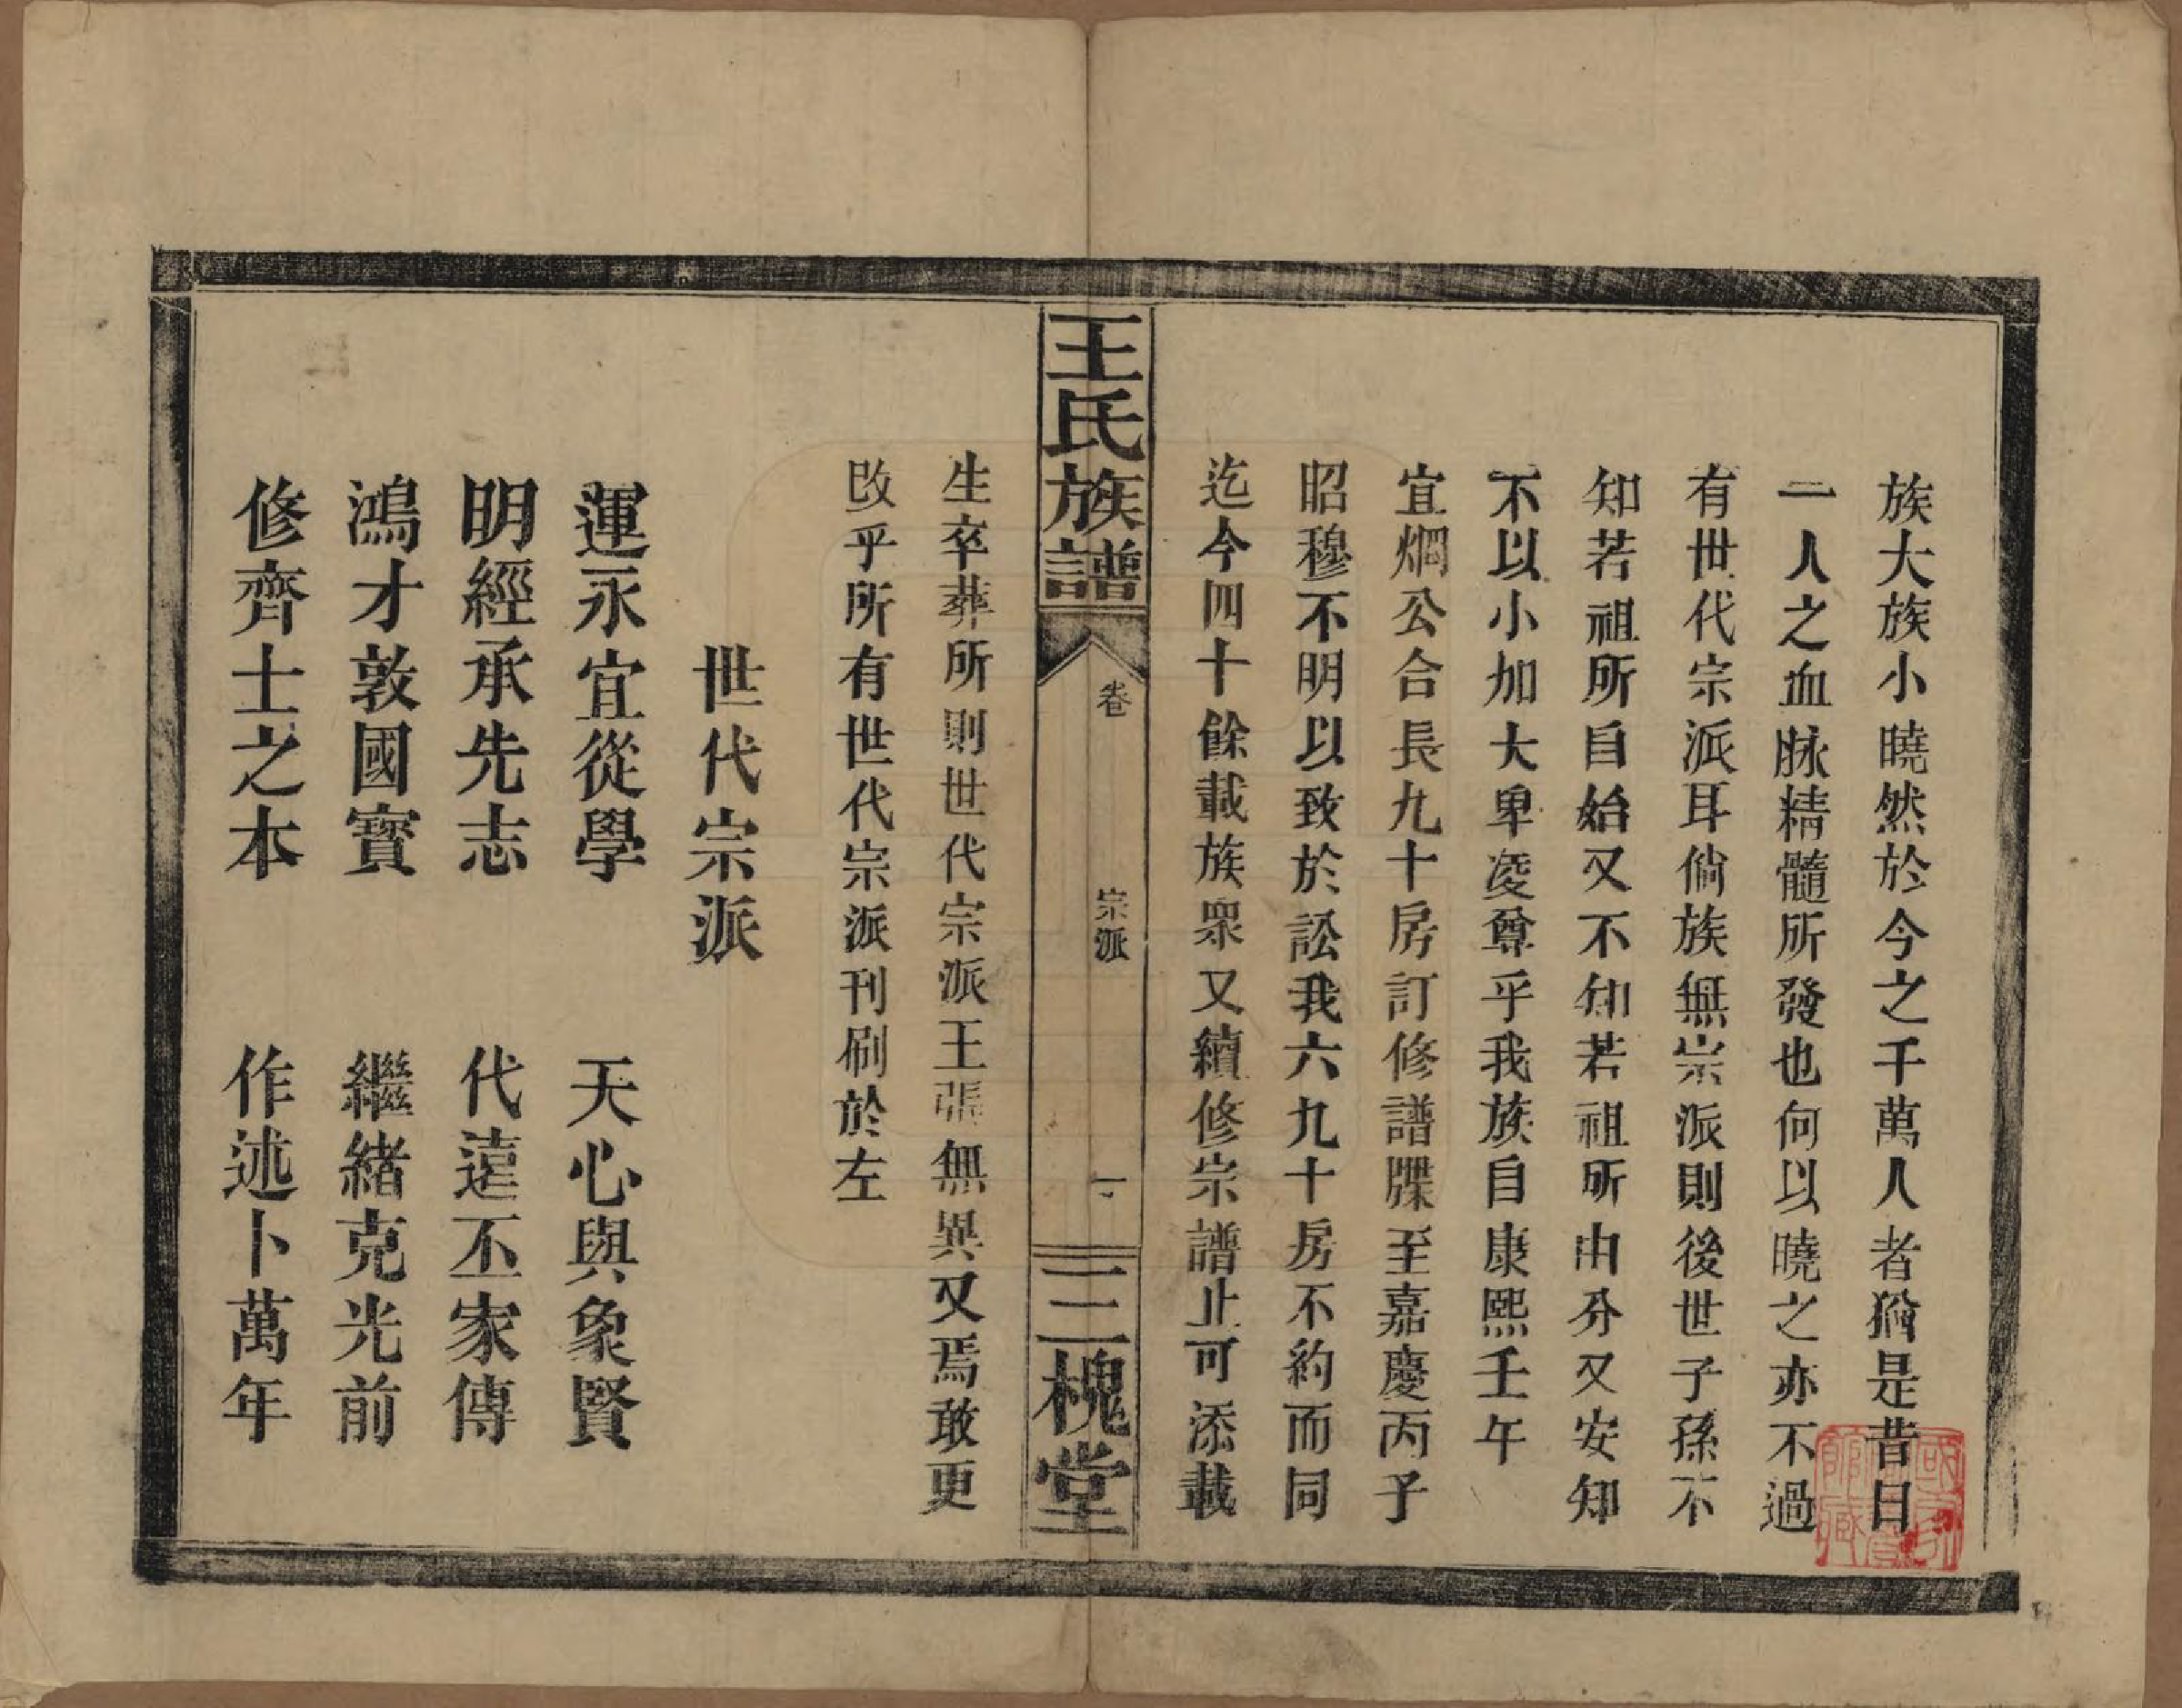 族大族小曉然於今之千萬人者猶是昔日
一人之血脉精髓所發也何以曉之亦不過
有世代宗派耳倘族無宗派則後世子孫不
知若祖所自始又不知若祖所由分又安知
不以小加大卑凌尊乎我族自康熙壬午
宜烱公合長九十房訂修譜牒至嘉慶丙子
昭穆不明以致於訟我六九十房不約而同
迄今四十餘載族眾又續修宗譜止可添載
王氏族譜
卷
宗派
一
三槐堂
生卒葬所則世代宗派王張無異又焉敢更
改乎所有世代宗派刊刷於左
世代宗派
運永宜從學 天心與象賢
明經承先志 代遠丕家傳
鴻才敦國寶 繼緒克光前
修齊士之本 作述卜萬年